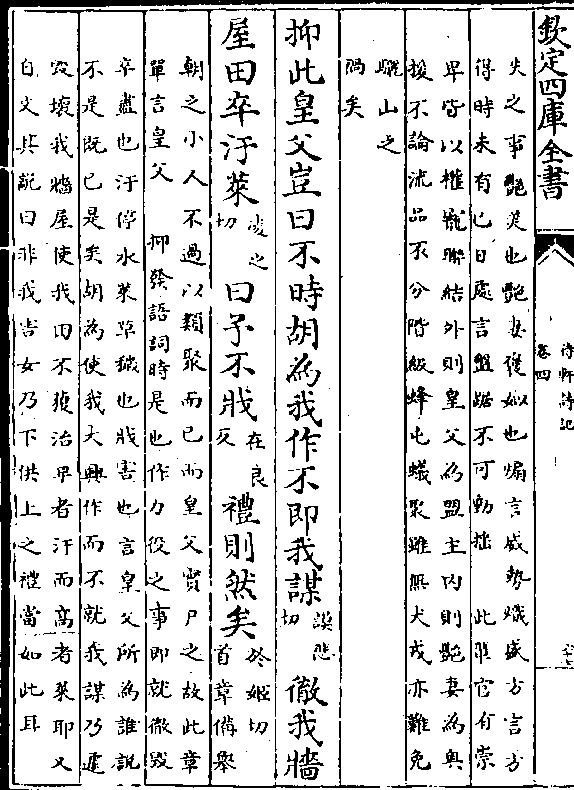 欽定四庫全書
待軒詩記
卷四
失之事艷美也艷妻褒姒也煽言威勢熾盛方言方
得時未有已日處言盤踞不可動揺 此雖官有崇
卑皆以權寵聯結外則皇父為盟主内則艷妻為輿
援不論流品不分階級蜂屯蟻聚雖無犬戎亦難免
驪山之
禍矣
抑此皇父豈曰不時胡為我作不即我謀謨悲切徹我牆
屋田卒汙萊凌之切曰予不戕在良反禮則然矣於姬切 首章備舉
朝之小人不過以類聚而已而皇父實尸之故此章
單言皇父 抑發語詞時是也作力役之事即就徹毁
卒盡也汙停水萊草穢也戕害也言皇父所為誰說
不是既已是矣胡為使我大興作而不就我謀乃遽
毁壞我牆屋使我田不獲治卑者汙而高者萊耶又
自文其說曰非我害女乃下供上之禮當如此耳